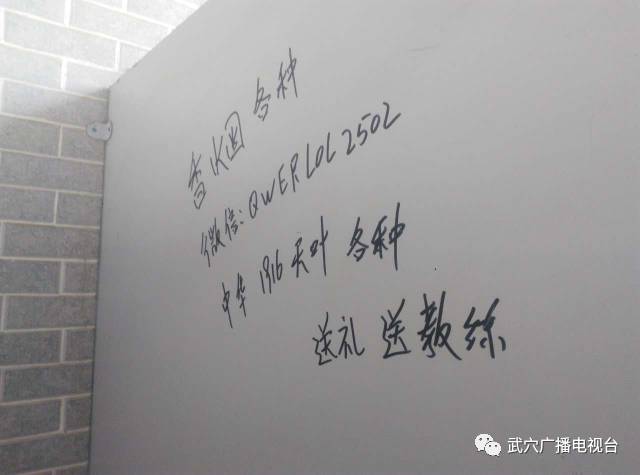 香烟 各种
微信:QWERLOL2502
中华 1916 天叶 各种
送礼 送教练
武穴广播电视台